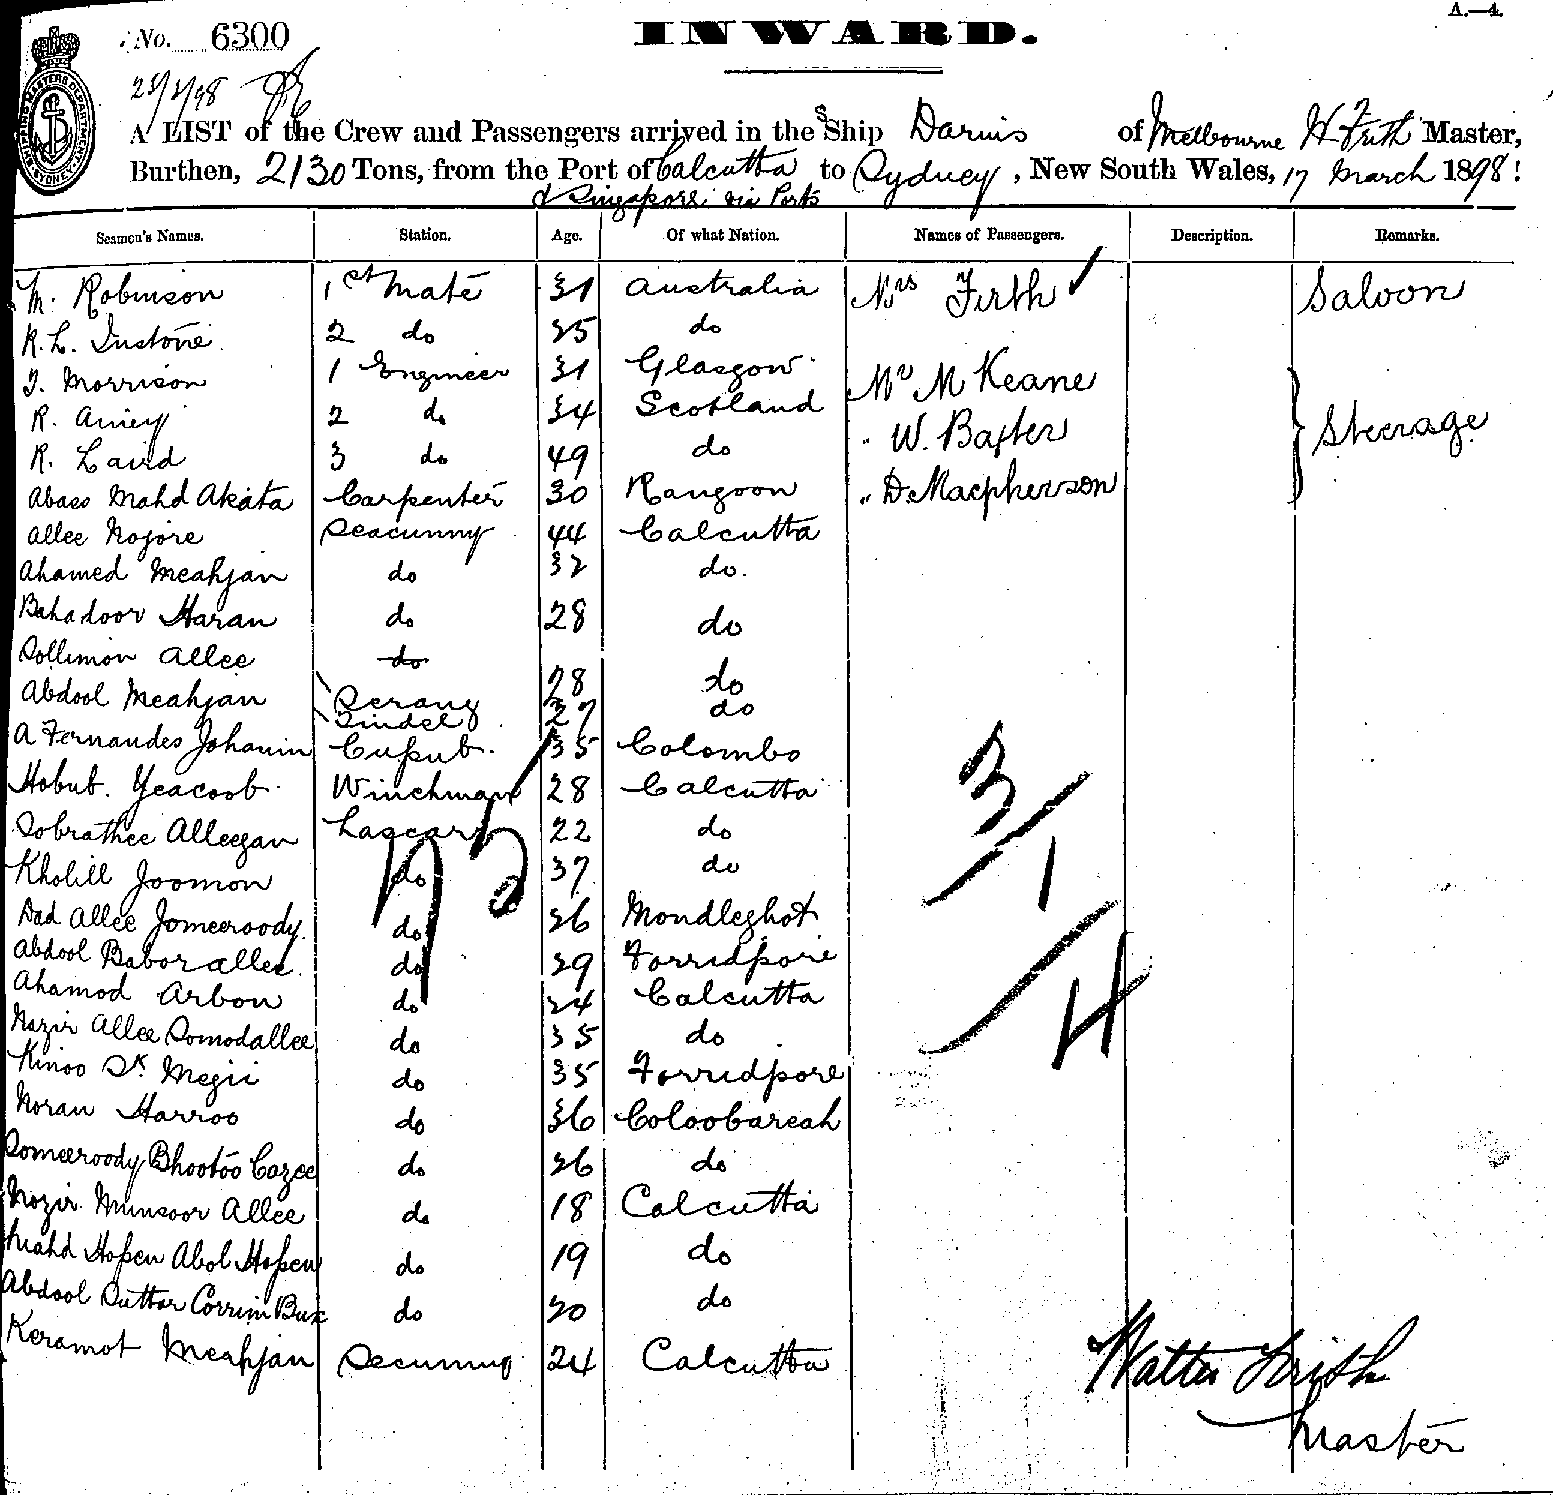 A.—4.
No. 6300
INWARD.
A LIST of the Crew and Passengers arrived in the SShip Darius of Melbourne W Frith Master,
Burthen, 2130 Tons, from the Port of Calcutta to Sydney, New South Wales, 17 March 1898:
& Singapore via Ports
Seamen's Names. Station. Age. Of what Nation. Names of Passengers. Description. Remarks.
M. Robinson 1st Mate 31 Australia Mrs Firth Saloon
R.L. Instone 2 do 25 do
J. Morrison 1 Engineer 31 Glasgow Mr M Keane
R. Ainey 2 do 34 Scotland " W. Baxter Steerage
R. Laird 3 do 49 do
Abass Mahd Akata Carpenter 30 Rangoon " D. Macpherson
Allee Nojore Seacunny 44 Calcutta
Ahamed Meahjan do 32 do.
Bahadoor Haran do 28 do
Sollimon Allee do 28 do
Abdool Meahjan Serang 27 do
Tindel
A Fernandes Johanin Cupub. 35 Colombo
Hobub. Yeacoob Winchman 28 Calcutta
Sobrathee Alleegan Lascars 22 do
Kholill Joomon do 37 do
Dad Allee Jomeeroody do 26 Mondleghot
Abdool Baborallee do 29 Forridpore
Ahamod Arbon do 24 Calcutta
Nozir Allee Somodallee do 35 do
Kinoo Sk Megii do 35 Forridpore
Noran Harroo do 36 Coloobareah
Someeroody Bhootoo Cazee do 26 do
Nozir Munsoor Allee do 18 Calcutta
Mahd Hossen Abol Hossen do 19 do
Abdool Suttar Corrim Bux do 20 do
Keramot Meahjan Secunny 24 Calcutta
3/1/4
Walter Frith
Master